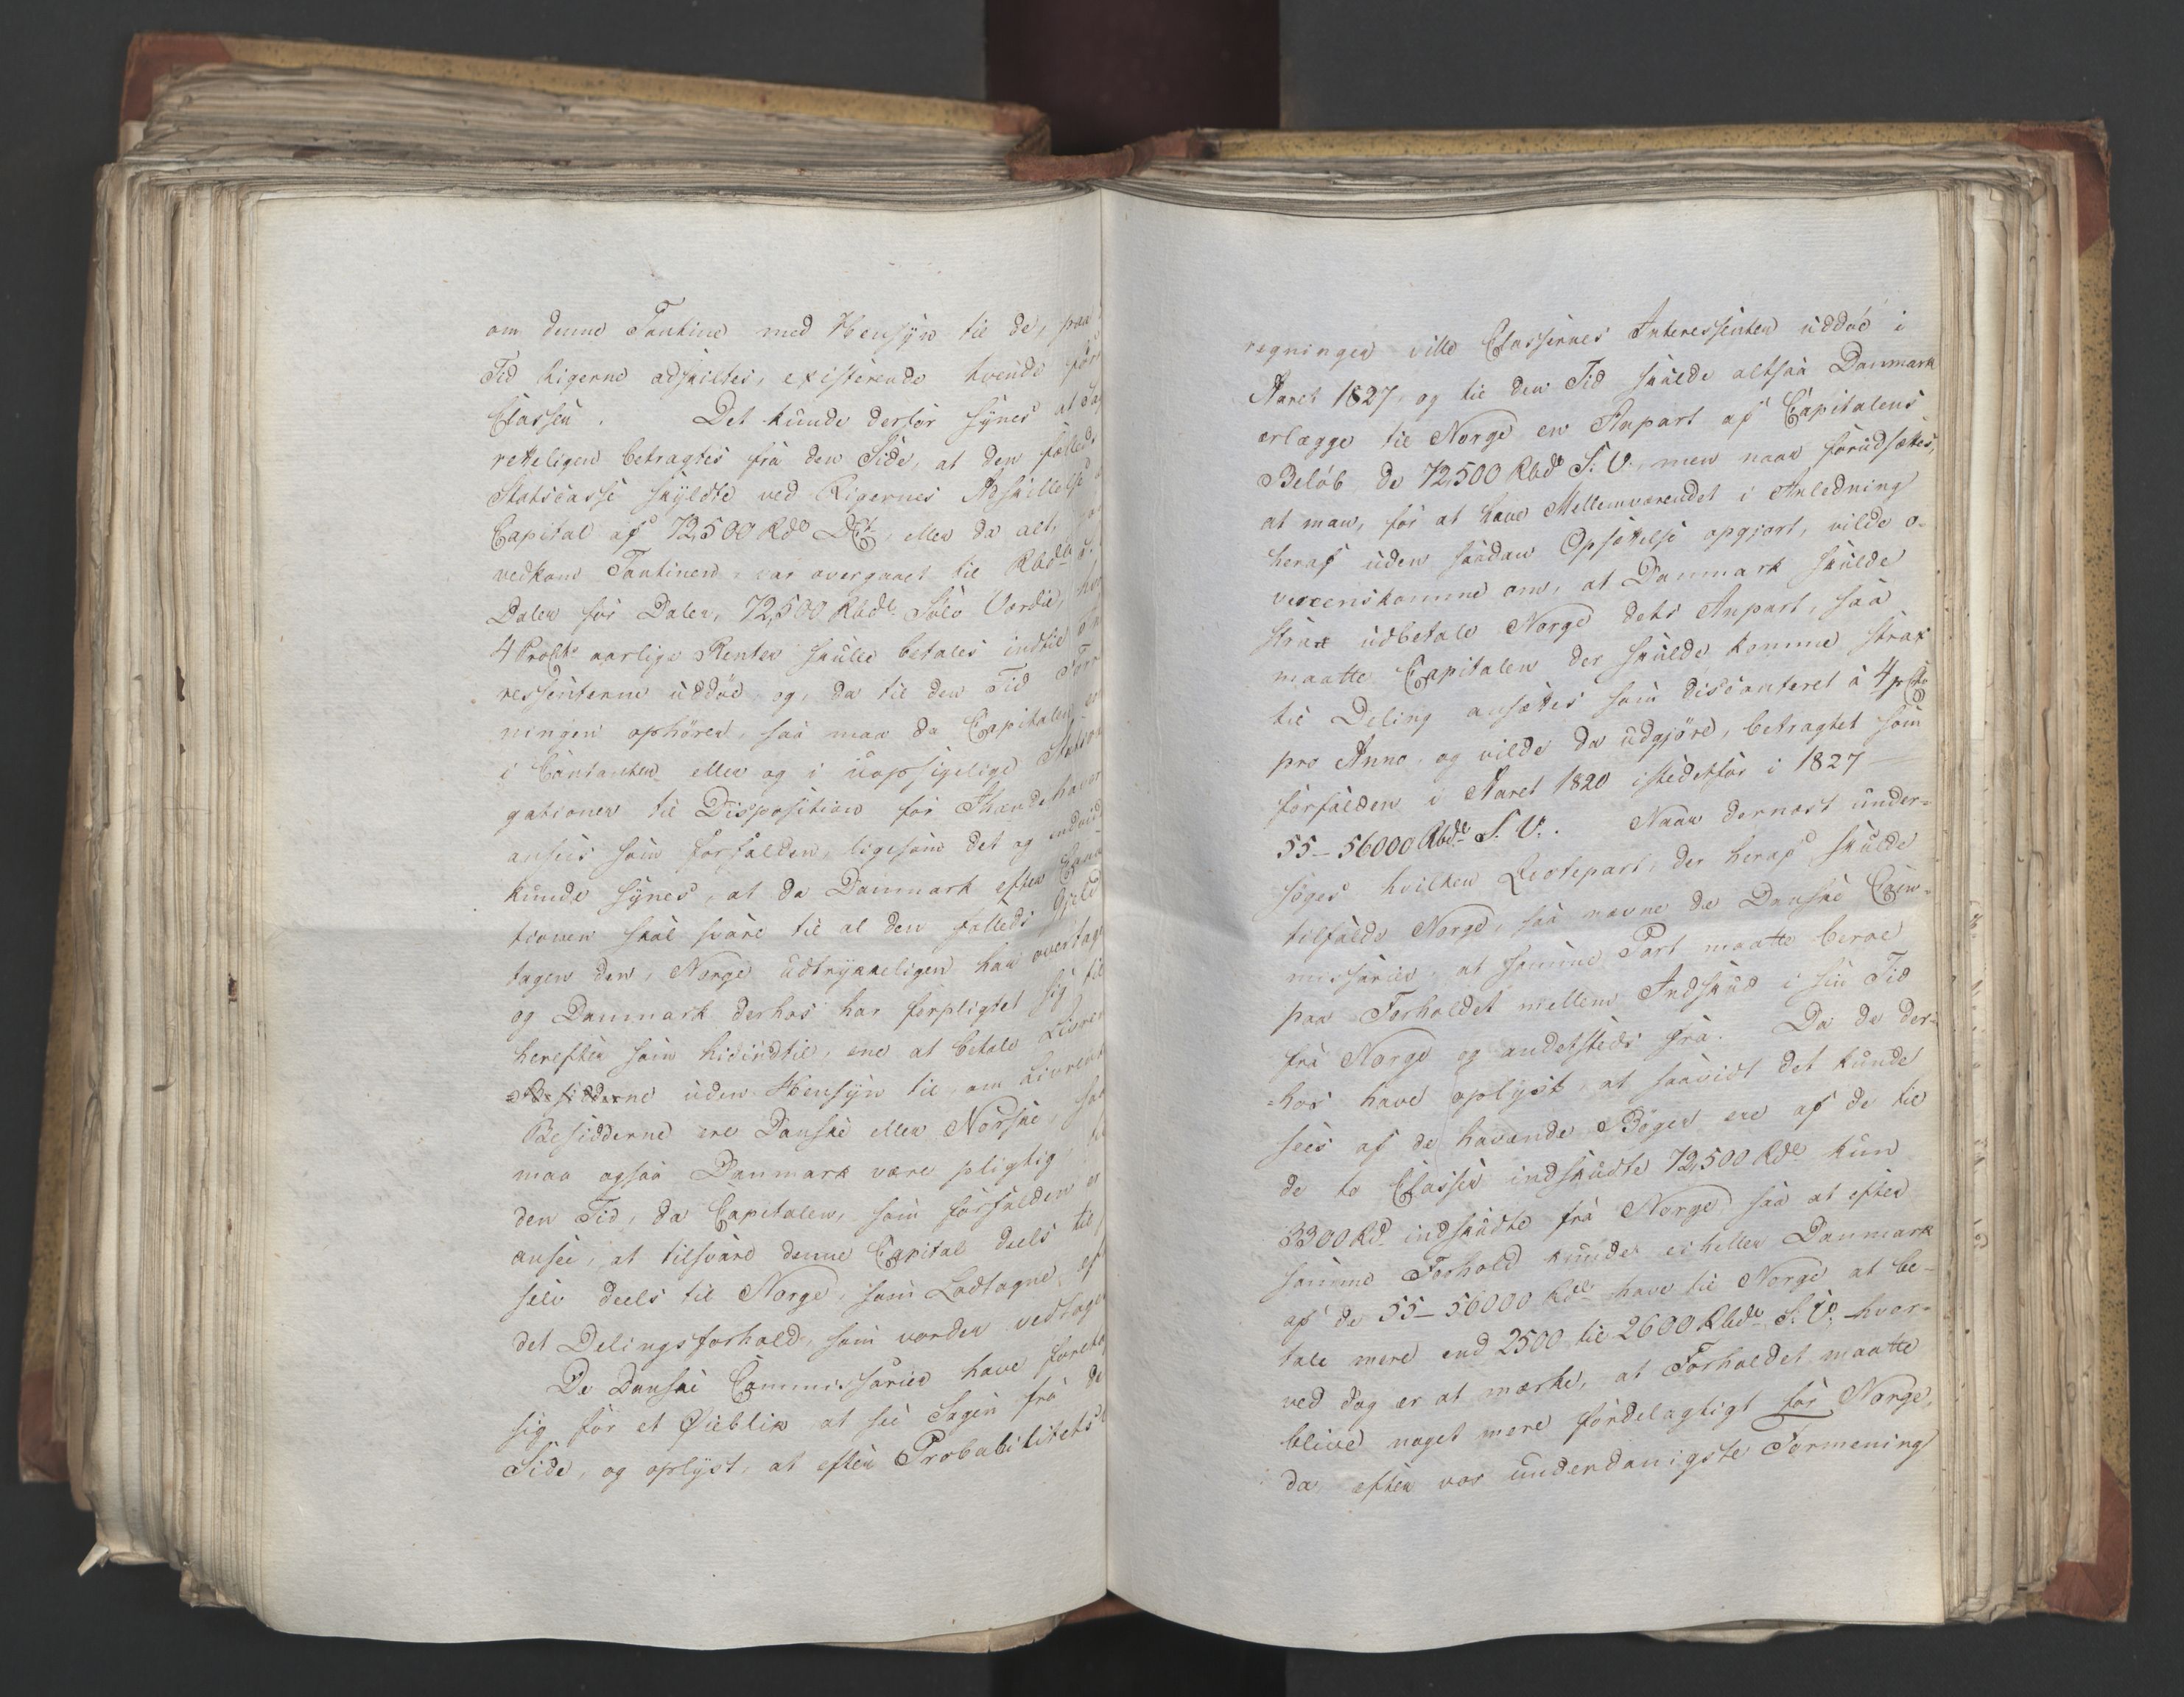 om denne Tontine med Hensyn til de, paa
Tid Rigerne adskiltes, existerende tvende før
Classer. Det kunde derfor synes at Sag
retteligen betragtes fra den Side, at den fælleds
Statscasse skyldte ved Rigernes Adskillelse
Capital af 72,500 Rdr DCt, eller da alt,
vedkom Tontinen, var overgaaet til Rbdlr S.
Daler for Daler, 72,500 Rbdlr Sølv Værdie, hvo
4 ProCto aarlige Renter skulle betales indtil In
ressenterne uddøe og, da til den Tid For
ningen ophører, saa maa da Capitalen en
i Contanter eller og i uopsigelige Statsob
gationer til Disposition for Ihændehaver
ansees som forfalden, ligesom det og endvid
kunde synes, at da Danmark efter Conv
tionen skal svare til al den fælleds Gjeld
tagen den, Norge udtrykkeligen har overtage
og Danmark derhos har forpligtet sig til
herefter som hidindtil, ene at betale Livren
Besidderne uden Hensyn til om Livrent
Besidderne ere Danske eller Norske, saa
maa ogsaa Danmark være pligtig
den Tid, da Capitalen, som forfalden er
ansee, at tilsvare denne Capital deels til
selv deels til Norge, som Lodtagne, ef
det Delingsforhold, som vorder vedtaget
De Danske Commissarier have foreta
sig for et Øieblik at see Sagen fra de
Side, og oplyst, at efter Probabilitets
regninger ville Classernes Interessenter uddøe i
Aaret 1827, og til den Tid skulde altsaa Danmark
erlægge til Norge en Anpart af Capitalens
Beløb de 72,500 Rbdr S. V., men naar forudsættes,
at man, for at have Mellemværendet i Anledning
heraf uden saadan Opsættelse opgjort, vilde o-
vereenskomme om, at Danmark skulde
strax udbetale Norge dets Anpart, saa
maatte Capitalen der skulde komme strax
til Deling ansættes som disconteret à 4 pCto
pro Anno, og vilde da udgjøre, betragtet som
forfalden i Aaret 1820 istedetfor i 1827
55-56000 Rbdlr S. V. Naar dernæst under-
søges hvilken Qvotepart, der heraf skulde
tilfalde Norge, saa nævne de Danske Com-
missarier, at samme Part maatte beroe
paa Forholdet mellem Indskud i sin Tid
fra Norge og andetsteds fra. Da de der-
hos have oplyst, at saavidt det kunde
sees af de havende Bøger, ere af de til
de to Classer indskudte 72,500 Rdlr kun
3300 Rd. indskudte fra Norge saa at efter
samme Forhold kunde ei heller Danmark
af de 55-56000 Rdlr have til Norge at be-
tale mere end 2500 til 2600 Rbdlr S. V., hvor-
ved dog er at mærke, at Forholdet maatte
blive noget mere fordelagtigt for Norge,
da efter vor underdanigste Formening